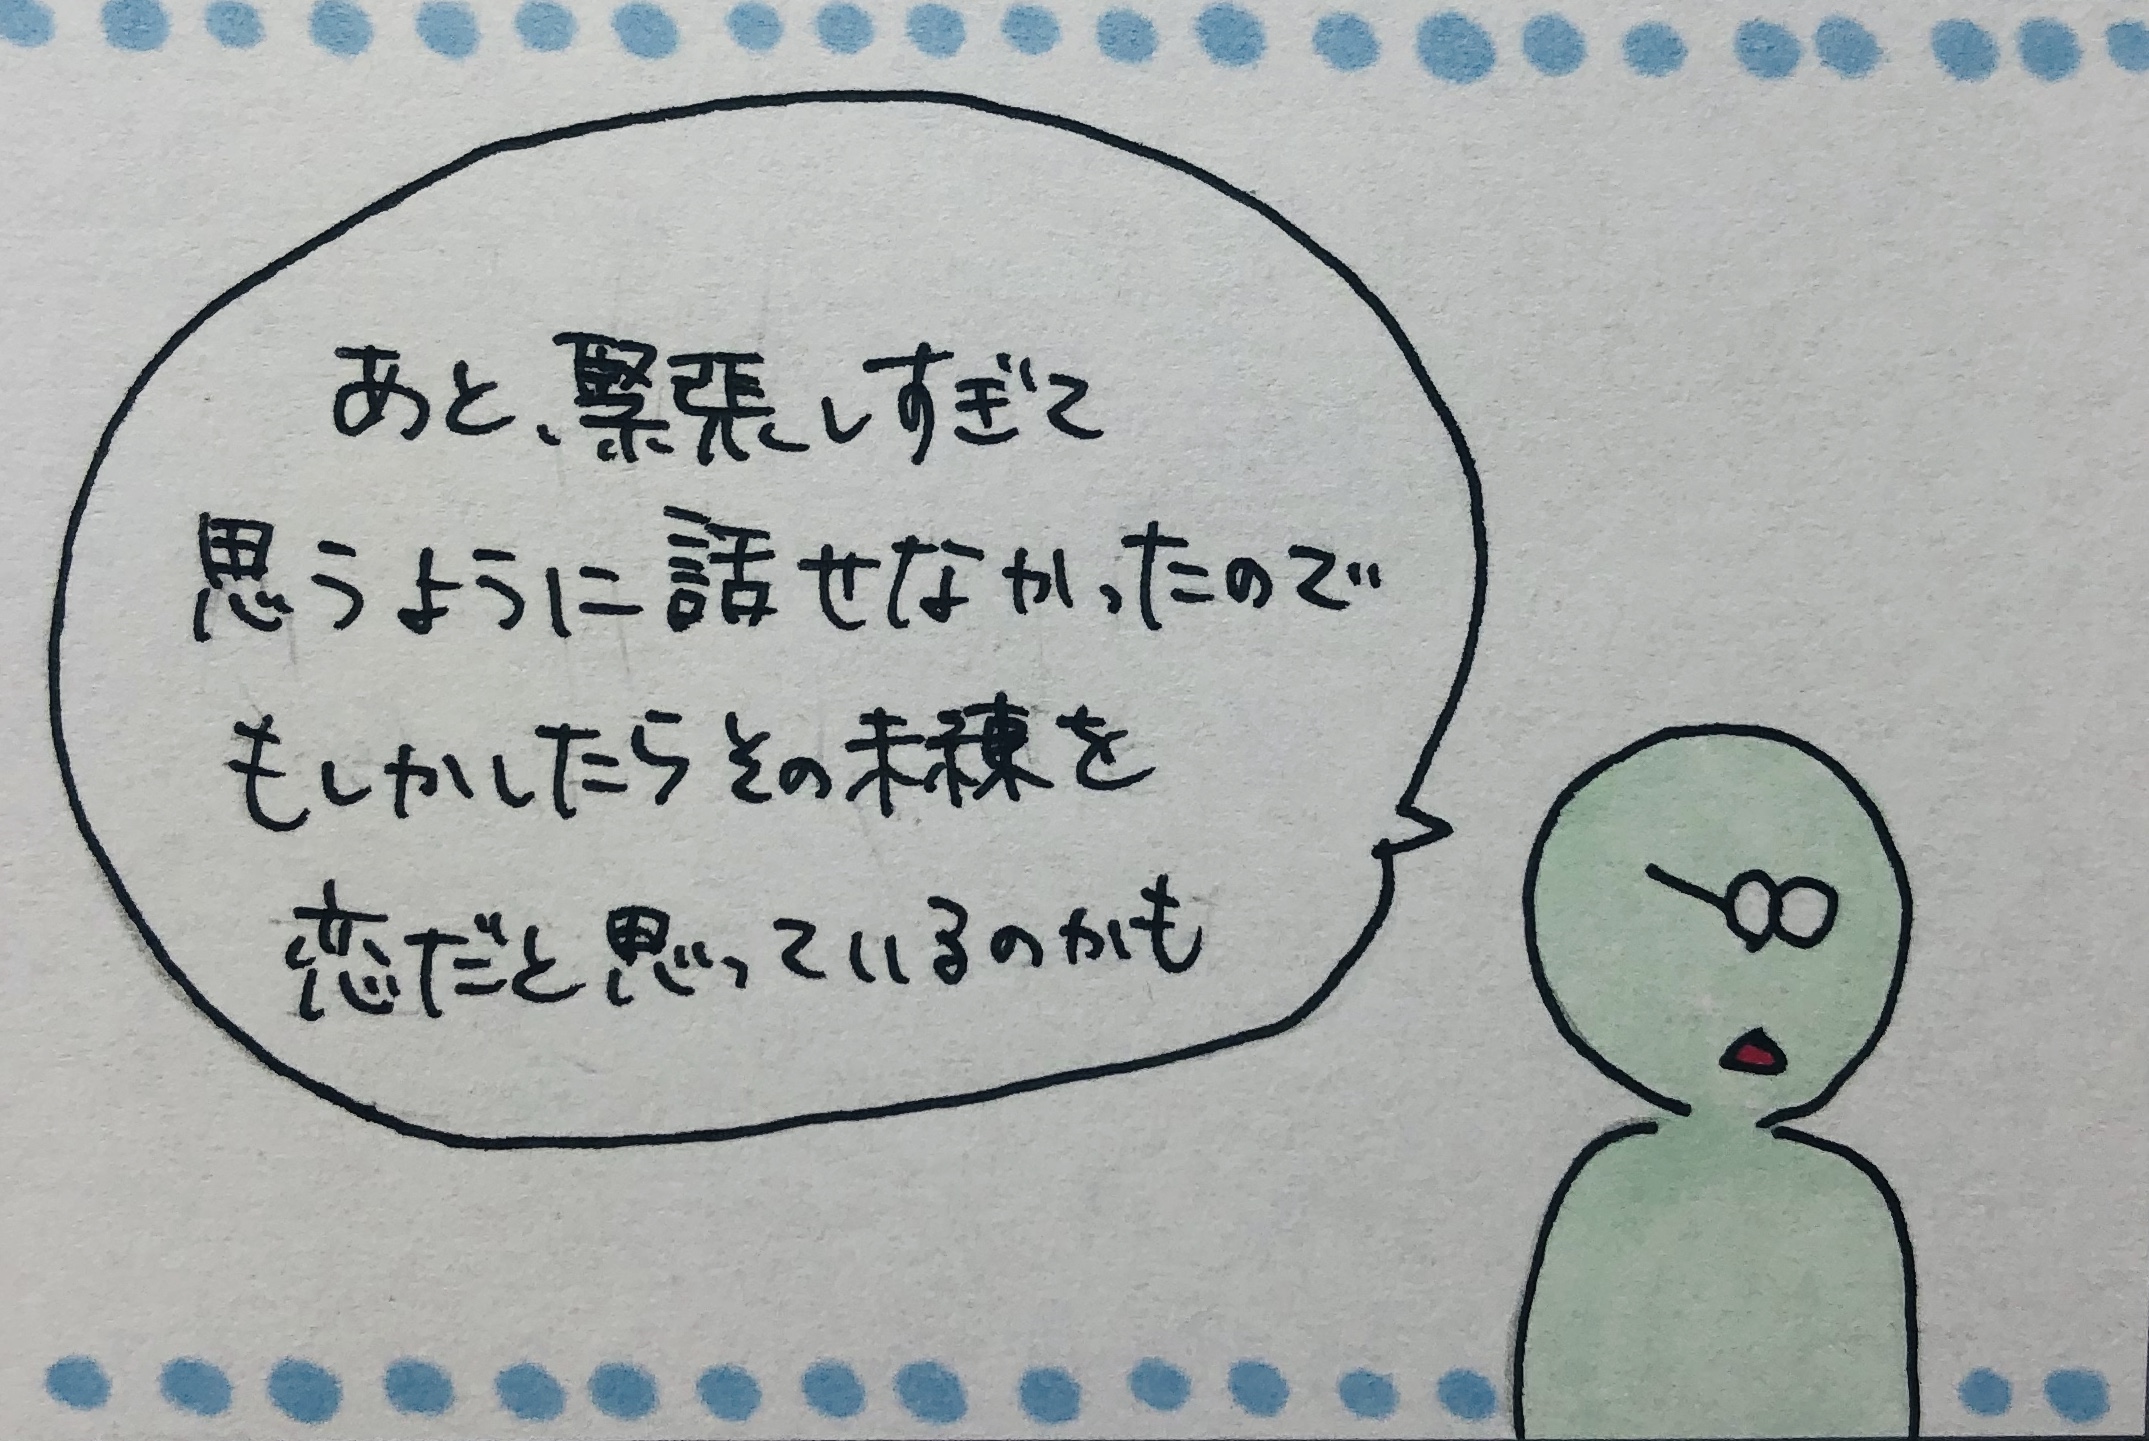 あと、緊張しすぎて
思うように話せなかったので
もしかしたらその未練を
恋だと思っているのかも